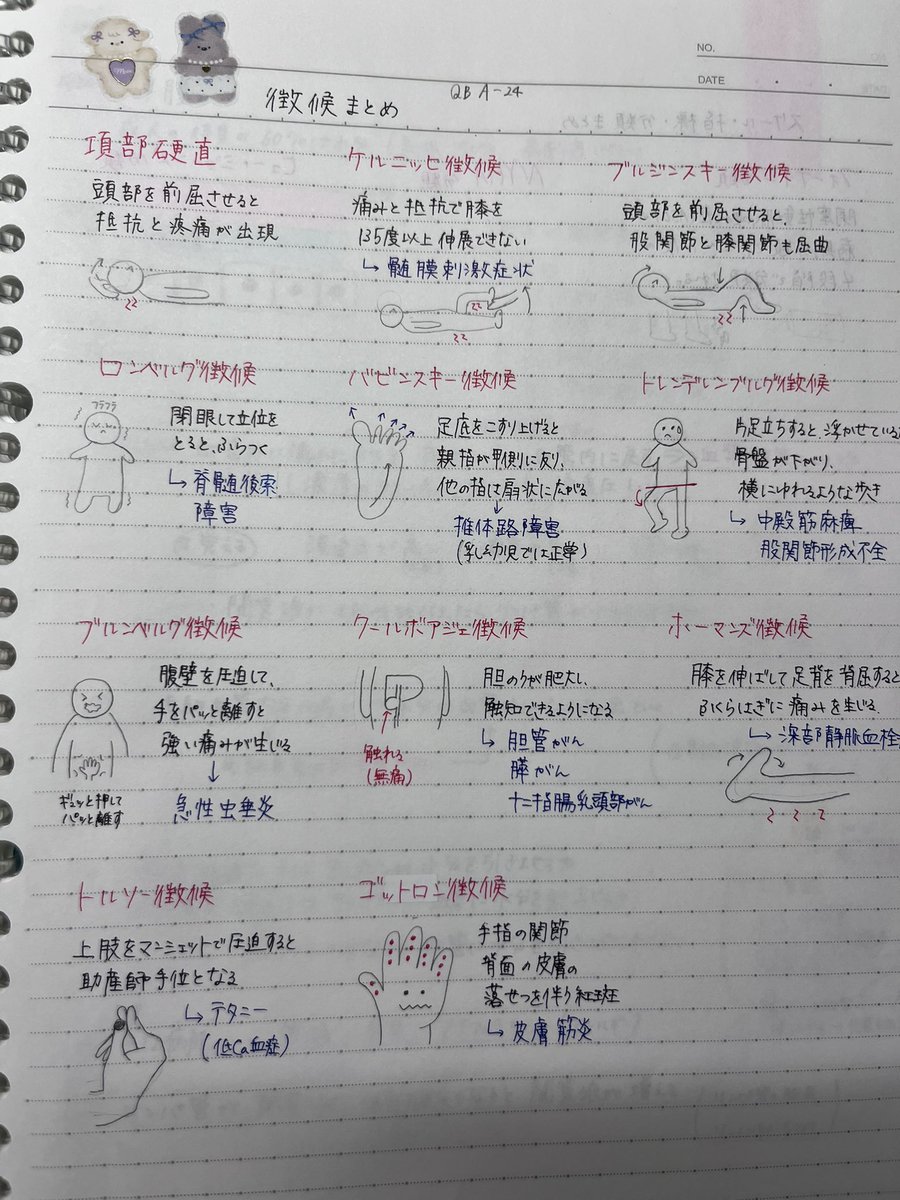 NO.
DATE
QB A-24
徴候まとめ
項部硬直
頭部を前屈させると
抵抗と疼痛が出現
ケルニッヒ徴候
痛みと抵抗で膝を
135度以上伸展できない
↳ 髄膜刺激症状
ブルジンスキー徴候
頭部を前屈させると
股関節と膝関節も屈曲
ロンベルグ徴候
フラフラ
閉眼して立位を
とると、ふらつく
↳ 脊髄後索
障害
バビンスキー徴候
足底をこすり上げると
親指が甲側に反り、
他の指は扇状に広がる
↓
錐体路障害
(乳幼児では正常)
トレンデレンブルグ徴候
片足立ちすると、浮かせている
骨盤が下がり、
横にゆれるような歩き
↳ 中殿筋麻痺
股関節形成不全
ブルンベルグ徴候
腹壁を圧迫して、
手をパッと離すと
強い痛みが生じる
↓
急性虫垂炎
ギュッと押して
パッと離す
クールボアジェ徴候
胆のうが肥大し、
触知できるようになる
↳ 胆管がん
膵がん
十二指腸乳頭部がん
触れる
(無痛)
ホーマンズ徴候
膝を伸ばして足背を背屈すると
ふくらはぎに痛みを生じる
↳ 深部静脈血栓
トルソー徴候
上肢をマンシェットで圧迫すると
助産師手位となる
↳ テタニー
(低Ca血症)
ゴットロン徴候
手指の関節
背面の皮膚の
落せつを伴う紅斑
↳ 皮膚筋炎